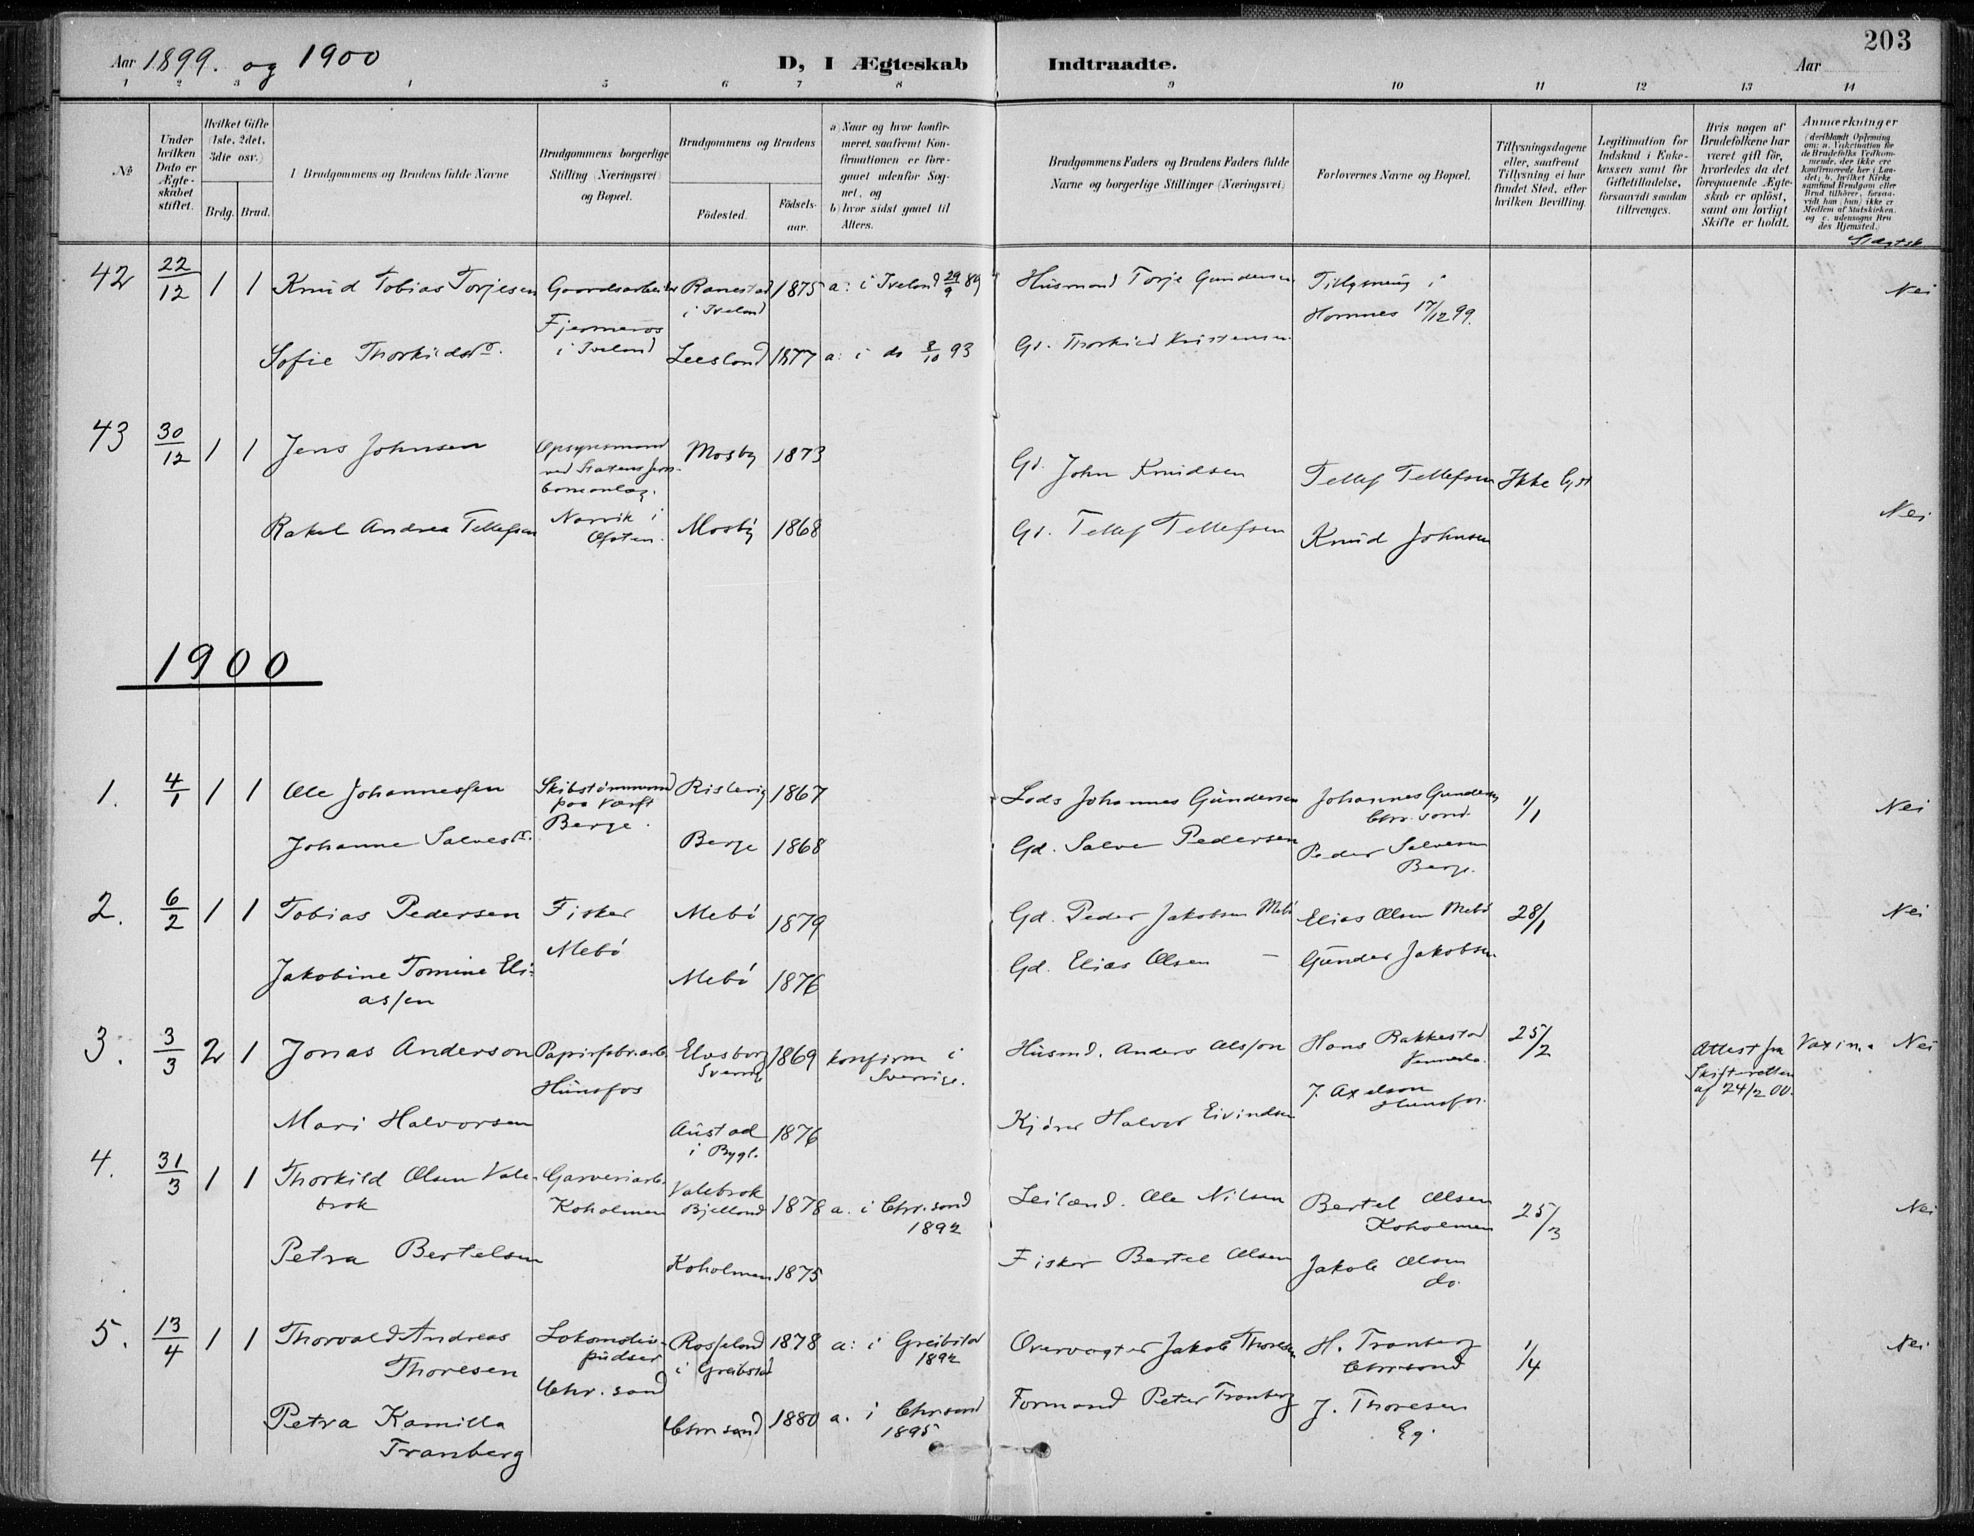 203
Aar 1899. og 1900
D, I Ægteskab Indtraadte.
Aar
1 2 3 4 5 6 7 8 9 10 11 12 13 14
№
Under hvilken Dato er Ægte-skabet stiftet.
Hvilket Gifte (1ste, 2det, 3die osv.)
Brdg. Brud.
1 Brudgommens og Brudens fulde Navne
Brudgommens borgerlige Stilling (Næringsvei) og Bopæl.
Brudgommens og Brudens
Födested.
Födsels-aar.
a) Naar og hvor konfir-meret, saafremt Kon-firmationen er fore-gaaet udenfor Sog-net, og
b) hvor sidst gaaet til Alters.
Brudgommens Faders og Brudens Faders fulde Navne og borgerlige Stillinger (Næringsvei)
Forlovernes Navne og Bopæl.
Tillysningsdagene eller, saafremt Tillysning ei har fundet Sted, efter hvilken Bevilling.
Legitimation for Indskud i Enke-kassen samt for Giftetilladelse, forsaavidt saadan tiltrænges.
Hvis nogen af Brudefolkene har været gift för, hvorledes da det foregaaende Ægte-skab er oplöst, samt om lovligt Skifte er holdt.
Anmærkninger
(deriblandt Oplysning om: a. Vakcination for de Brudefolks Vedkom-mende, der ikke ere konfirmerede her i Lan-det; b. hvilket Kirke-samfund Brudgom eller Brud tilhörer, forsaa-vidt han (hun) ikke er Medlem af Statskirken, og c. udensogns Bru-des Hjemsted.)
Slægtsk.
42 22/12 1 1 Knud Tobias Torjesen Gaardsarbeider Ranestad i Iveland 1875 a: i Iveland 29/9 89 Husmand Torje Gundersen Tillysning i Hornnes 17/12 99. Nei
Fjermeros i Iveland
Sofie Thorkildsd. Leesland 1877 a: i do 8/10 93 Gd. Thorkild Kristensen
43 30/12 1 1 Jens Johnsen Opsynsmand ved Statens Mosby 1873 Gd. John Knudsen Tellef Tellefsen Ikke lyst Nei
Narvik i Ofoten.
Rakel Andrea Tellefsen Mosby 1868 Gd. Tellef Tellefsen Knud Johnsen
1900
1. 4/1 1 1 Ole Johannessen Skibstömmermand paa Værft Berge. 1867 Lods Johannes Gundersen Johannes Gundersen Chr.sand. 1/1 Nei
Johanne Salvesd. Berge 1868 Gd. Salve Pedersen Peder Salvesen Berge.
2. 6/2 1 1 Tobias Pedersen Fisker Mebö Mebö 1879 Gd. Peder Jakobsen Mebö Elias Olsen Mebö 28/1 Nei
Jakobine Tomine Eli-assen Mebö 1876 Gd. Elias Olsen — Gunder Jakobsen
3. 3/3 2 1 Jonas Anderson Papirfabr.arb. Hunsfos Elvsborg Sverrig 1869 konfirm i Sverrige. Husmd. Anders Olsson Hans Rakkestad Vennesla. 25/2 Attest fra Skifteretten af 24/2 00. Vaxin. Nei
J. Axelson Hunsfos.
Mari Halvorsen Austad i Bygl. 1876 Kjörer Halvor Eivindsen
4. 31/3 1 1 Thorkild Olsen Vale-brok Garveriarb. Koholmen Valebrok Bjelland 1878 a. i Chr.sand 1892 Leilænd. Ole Nilsen Bertel Olsen Koholmen 25/3 Nei
Petra Bertelsen Koholmen 1875 Fisker Bertel Olsen Jakob Olsen do.
5. 13/4 1 1 Thorvald Andreas Thoresen Lokomotiv-pudser Chr.sand Rosseland i Greibstad 1878 a: i Greibstad 1892 Overvogter Jakob Thoresen H. Tranberg Chr.sand 1/4 Nei
Petra Kamilla Tranberg Chr.sand 1880 a. i Chr.sand 1895 Formand Peter Tranberg J. Thoresen Eg.